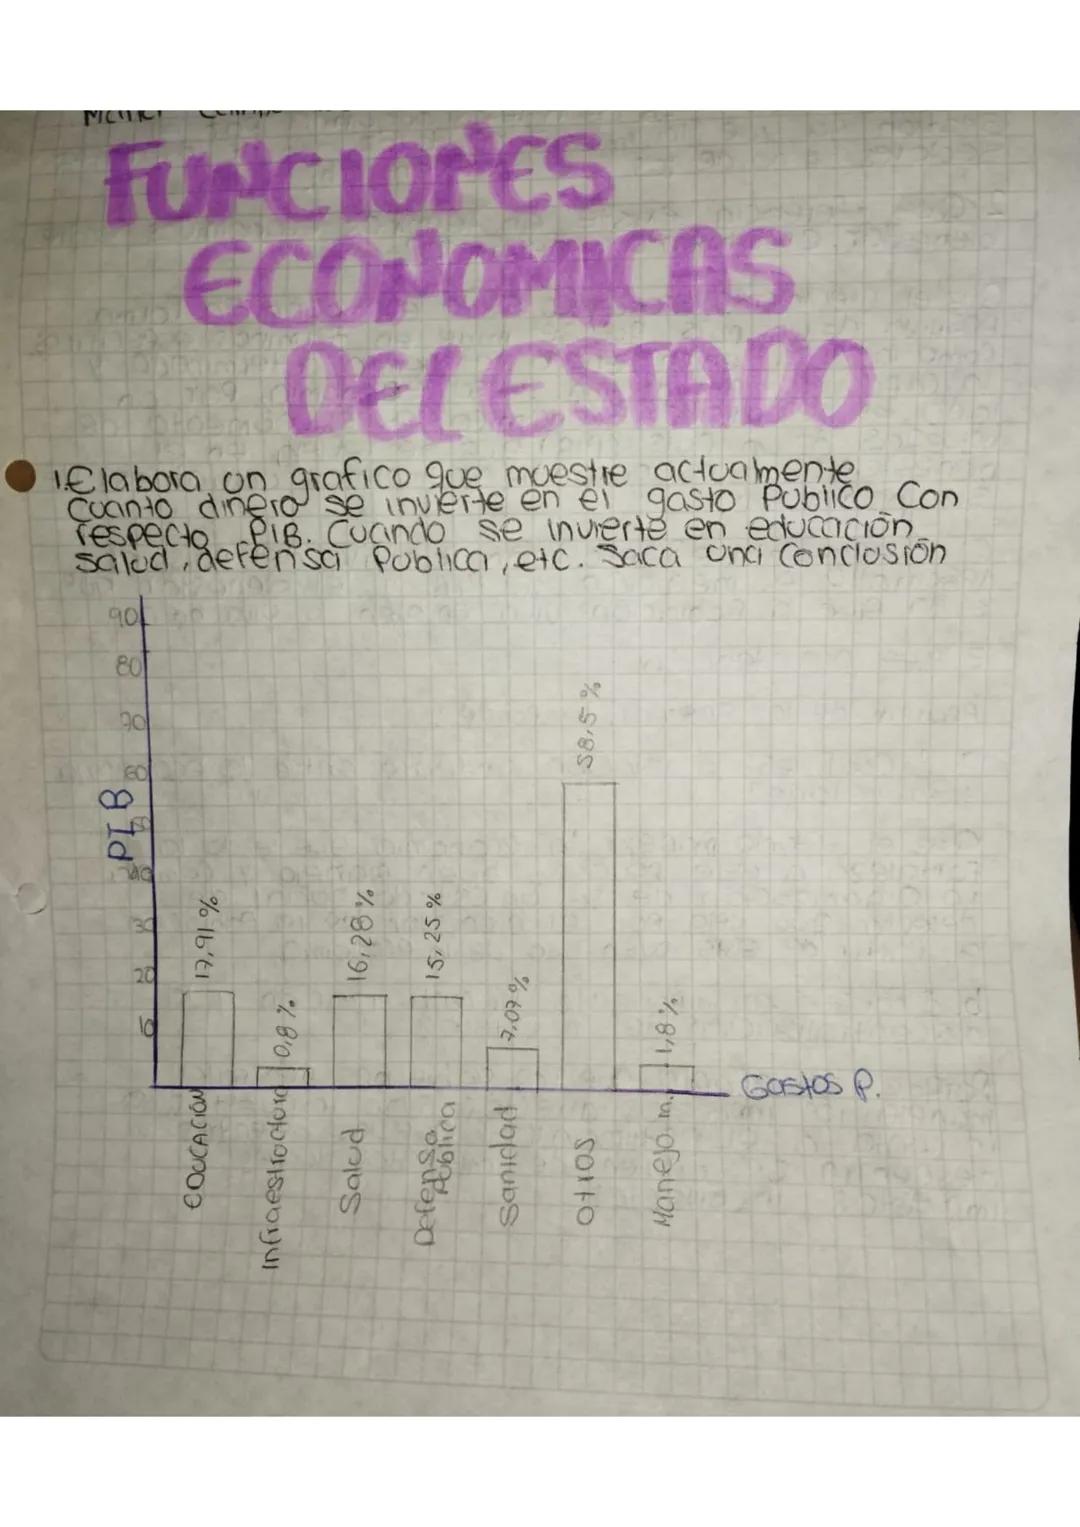 FUNCIONES
ECONOMICAS
DEL ESTADO
1.Elabora un grafico que muestre actualmente
cuanto dinero se invierte en el gasto Publico con
respecto PIB. Cuando se invierte en educación
salud, defensa Publica, etc. Saca una conclusión
90
80
70
60
50
40
30
20
10
PIB
17,91 %
0,8 %
16,28 %
15,25 %
7,07 %
58,5 %
1,8 %
Gastos P.
EDUCACIÓN
Infraestructura
Salud
Defensa
Publica
Sanidad
Otros
Manejo m.